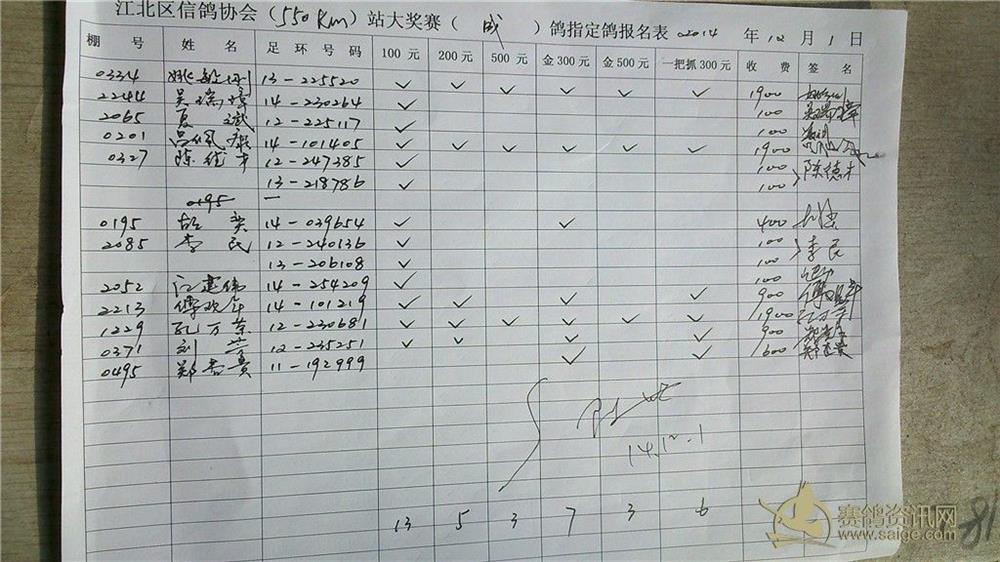 江北区信鸽协会（550Km）站大奖赛（成）鸽指定鸽报名表 2014年12月1日
棚号 姓名 足环号码 100元 200元 500元 金300元 金500元 一把抓300元 收费 签名
0334 13-225520 ✓ ✓ ✓ ✓ ✓ ✓ 1900
2244 吴瑞璋 14-230264 ✓ 100
2065 夏斌 12-225117 ✓ 100
0201 14-101405 ✓ ✓ ✓ ✓ ✓ ✓ 1900
0327 陈德才 12-247385 ✓ 100 陈德才
13-218786 ✓ 100
0195 —
0195 14-039654 ✓ ✓ 400
2085 李民 12-240136 ✓ 100 李民
13-206108 ✓ 100
2052 江建伟 14-254209 ✓ 100
2213 傅欢年 14-101219 ✓ ✓ ✓ ✓ 900
1229 孔万荣 12-230681 ✓ ✓ ✓ ✓ ✓ ✓ 1900 孔万荣
0371 刘 12-235251 ✓ ✓ ✓ ✓ 900
0495 郑 贵 11-192999 ✓ ✓ 600
14.12.1
13 5 3 7 3 6
赛鸽资讯网
www.saige.com
81